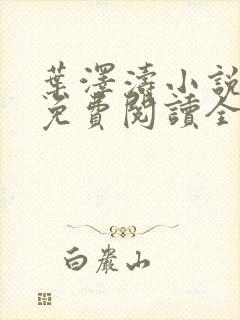 葉澤濤小說
免費閱讀全
白巖山